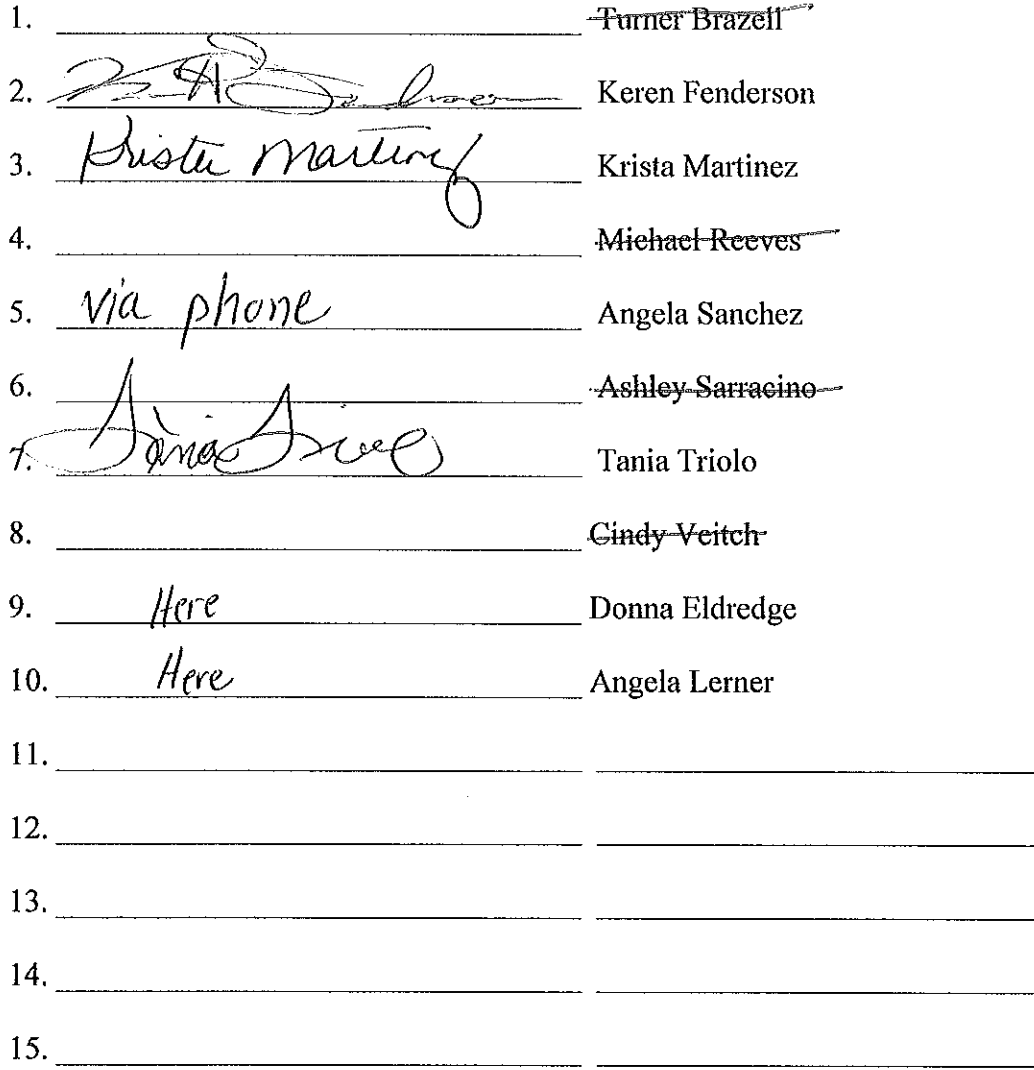 1. Turner Brazell
2. Keren Fenderson
3. Krista Martinez Krista Martinez
4. Michael Reeves
5. via phone Angela Sanchez
6. Ashley Sarracino
7. Tania Triolo
8. Cindy Veitch
9. Here Donna Eldredge
10. Here Angela Lerner
11.
12.
13.
14.
15.